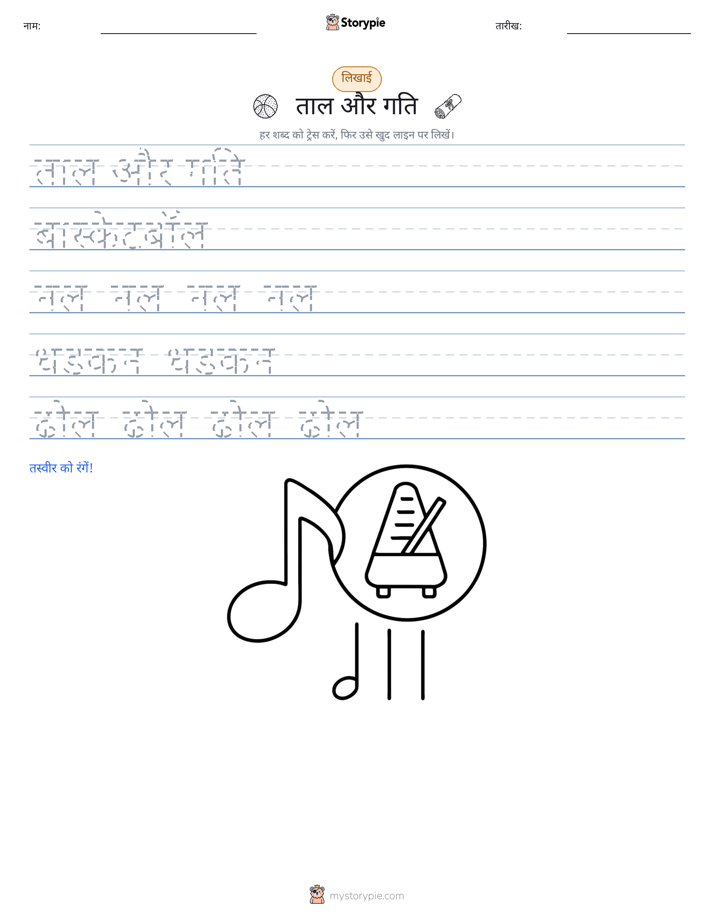 नाम:
Storypie
तारीख:
लिखाई
ताल और गति
हर शब्द को ट्रेस करें, फिर उसे खुद लाइन पर लिखें।
ताल और गति
बास्केटबॉल
नल नल नल नल
धडकन धडकन
ढोल ढोल ढोल ढोल
तस्वीर को रंगें!
mystorypie.com